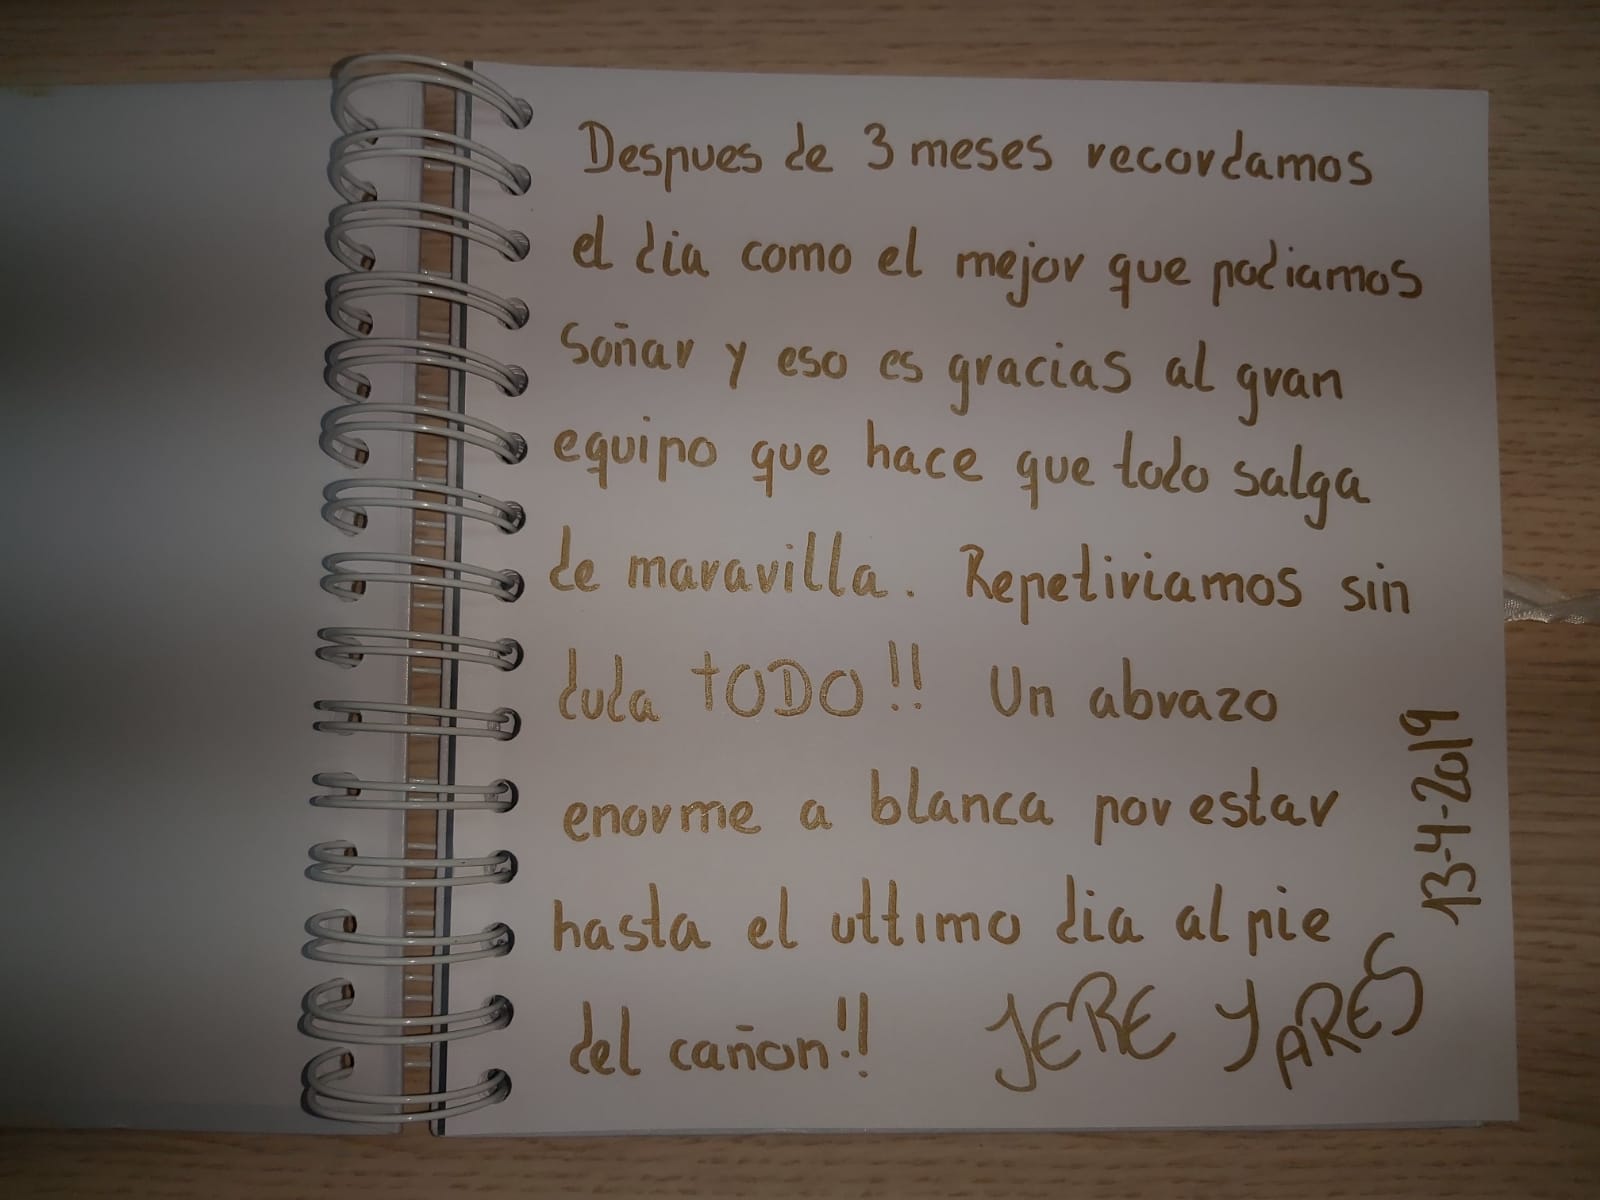 Despues de 3 meses recordamos
el dia como el mejor que podiamos
soñar y eso es gracias al gran
equipo que hace que todo salga
de maravilla. Repetiriamos sin
duda TODO!! Un abrazo
enorme a blanca por estar
hasta el ultimo dia al pie
del cañon!! JERE Y ARES
13-4-2019